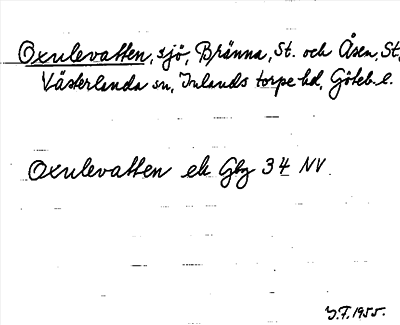 Oxulevatten, sjö, Bränna, St. och Åsen, St,
Västerlanda sn, Inlands torpe hd, Göteb. l.
Oxulevatten ek Gbg 34 NV.
J.F. 1955.